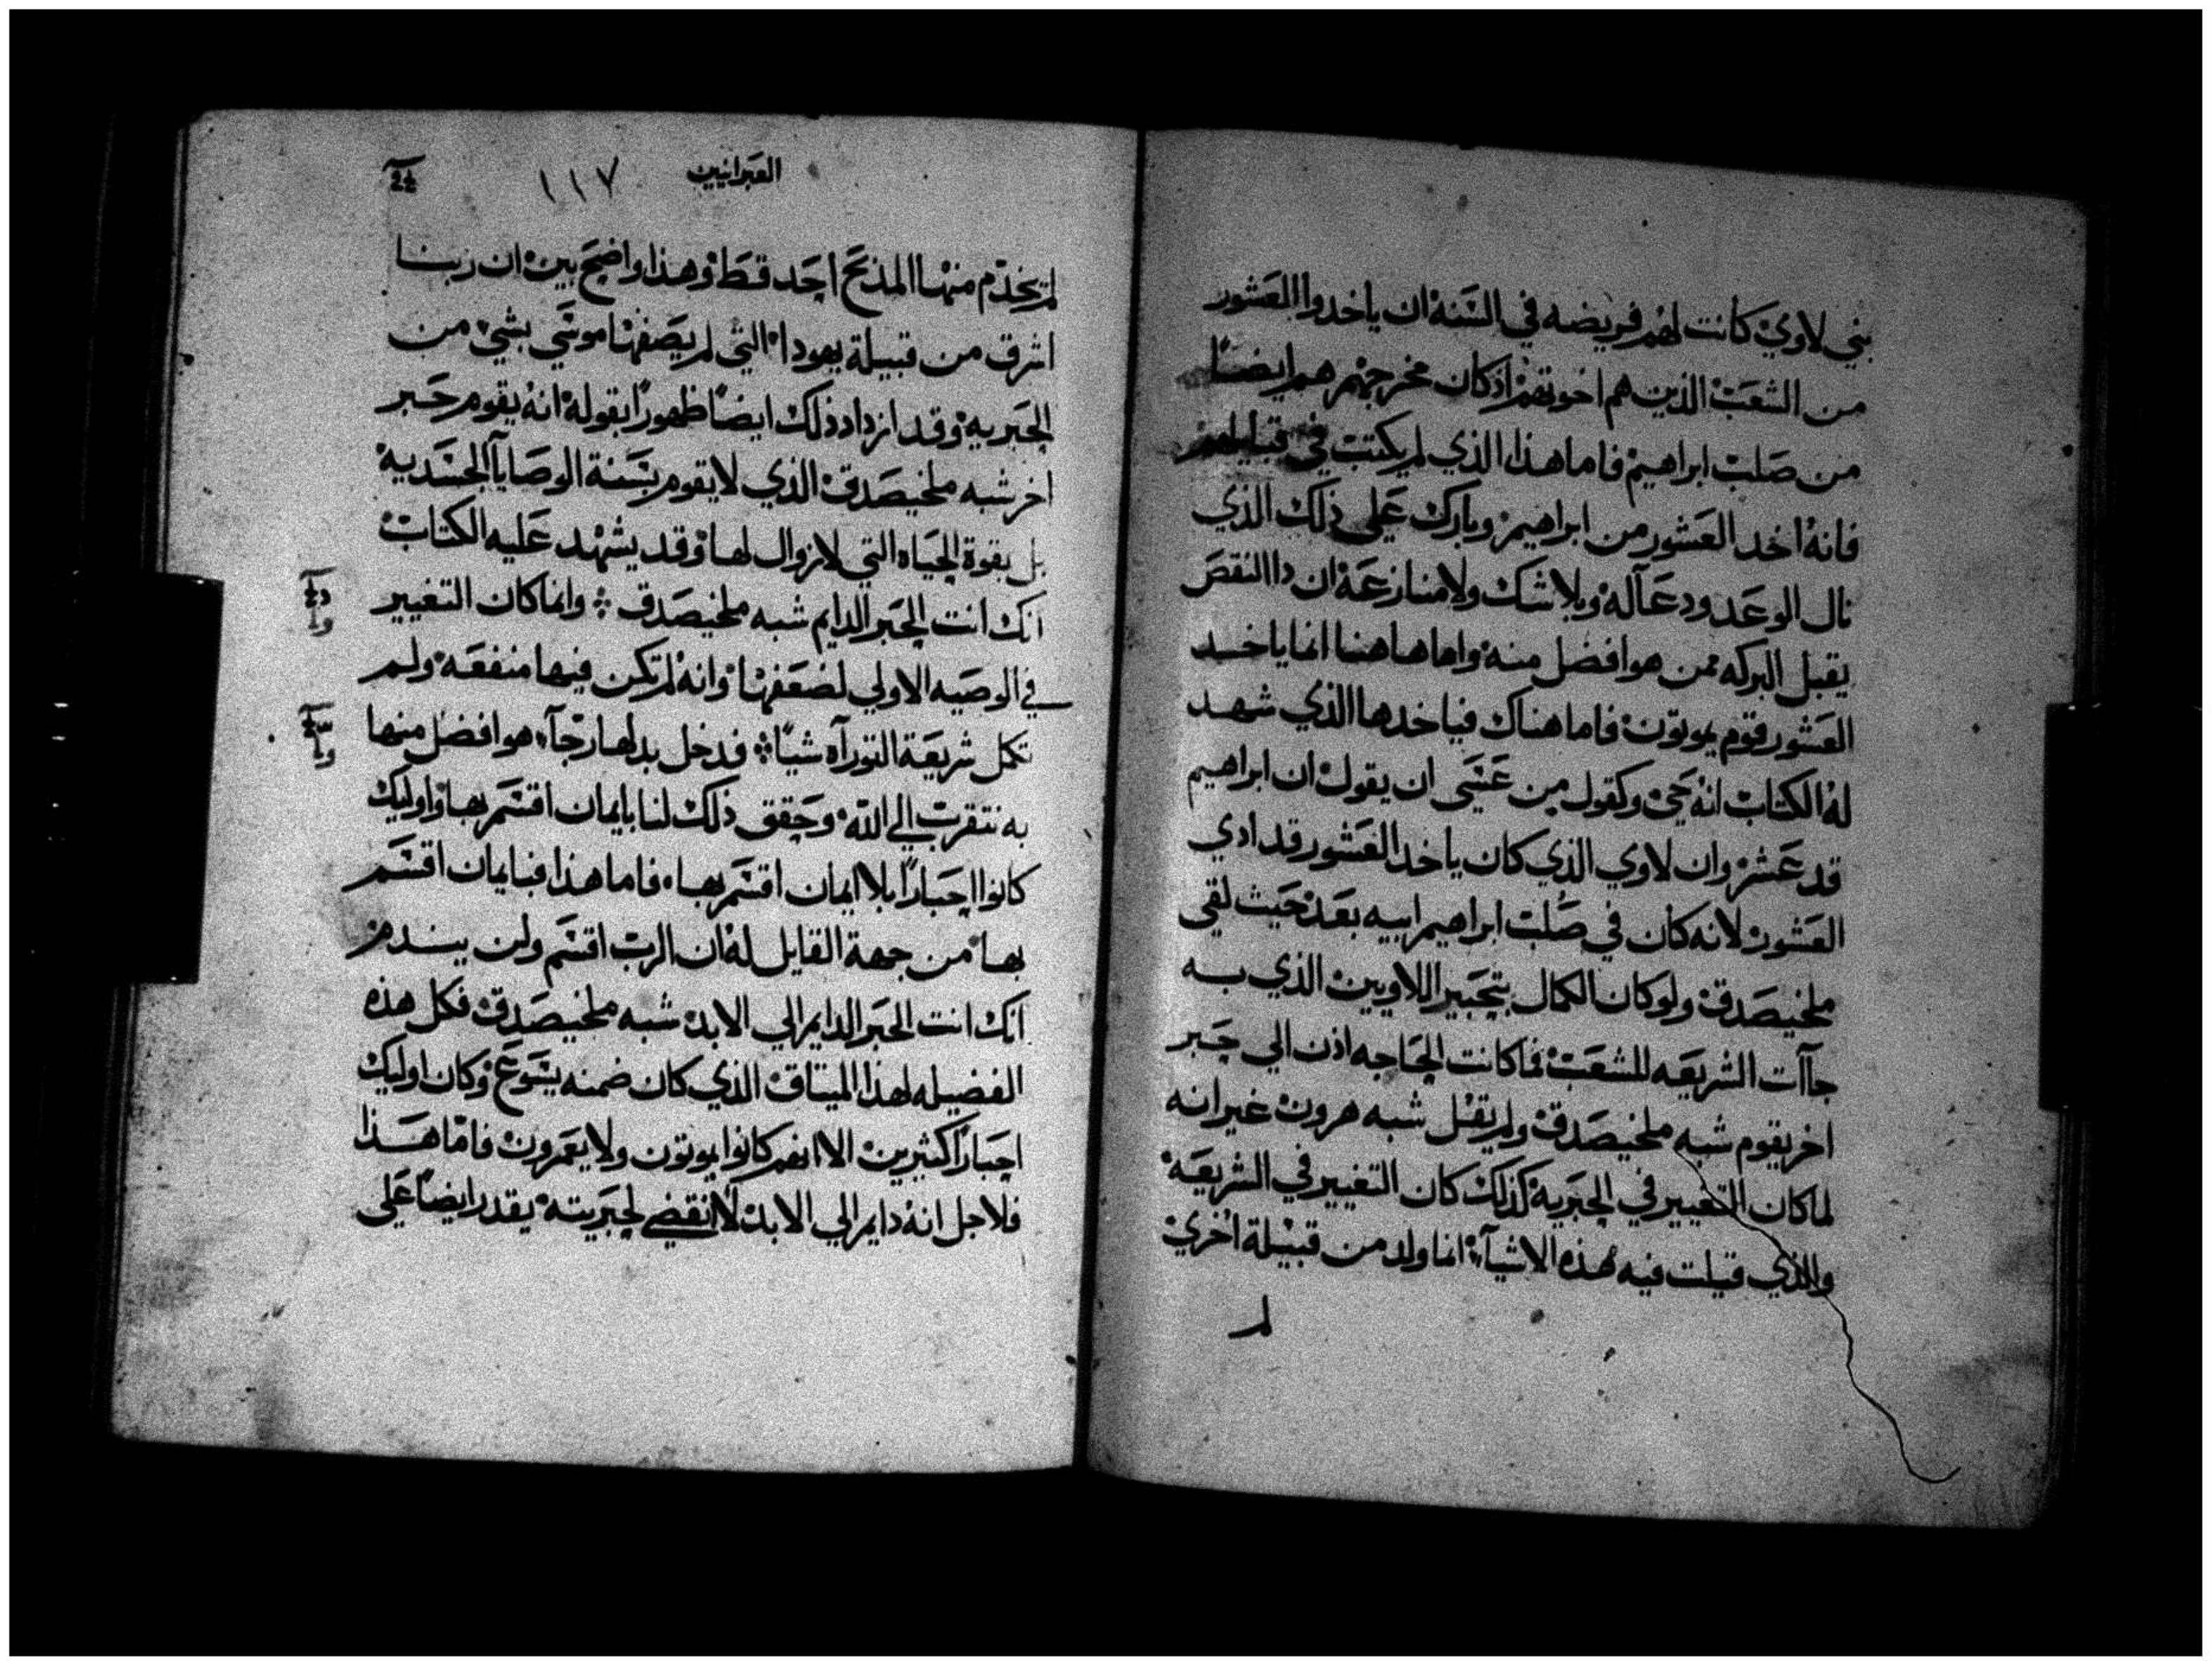 بني لاوي كانت لهم فريضه في السنه ان ياخدوا المعشور
من الشعب الذين هم اخوتهم اذ كان مخرجهم هم ايضًا
من صلب ابراهيم فاما هذا الذي لم يكتب في قبايلهم
فانه اخد العشور من ابراهيم وبارك علي ذلك الذي
نال الوعد ودعآله وبلا شك ولا منازعة ان دا النقص
يقبل البركه ممن هو افضل منه واما هاهنا انما ياخد
العشور قوم يموتون فاما هناك فياخدها الذي شهد
له الكتاب انه حي وكقول من عسي ان يقول ان ابراهيم
قد عشر وان لاوي الذي كان ياخد العشور قد ادي
العشور لانه كان في صلب ابراهيم ابيه بعد حيث لقي
ملخيصدق ولو كان الكمال بتحبير اللاويين الذي به
جآت الشريعه للشعب فما كانت الحاجه اذن الي حبر
اخر يقوم شبه ملخيصدق ولم يقل شبه هرون غير انه
لما كان التغيير في الحبرية كذلك كان التغيير في الشريعة
والذي قيلت فيه هذه الاشيآ انما ولد من قبيلة اخري
لم
العبرانيين ١١٧
لم يخدم منها المذبح احد قط وهذا واضح بين ان ربنا
اشرق من قبيلة يهودا التي لم يصفها موسي بشي من
الحبريه وقد ازداد ذلك ايضًا ظهورًا بقوله انه يقوم حبر
اخر شبه ملخيصدق الذي لا يقوم بسنة الوصايا الجسديه
بل بقوة الحياه التي لا زوال لها وقد يشهد عليه الكتاب
انك انت الحبر الدايم شبه ملخيصدق وانما كان التغيير
في الوصيه الاولي لضعفها وانه لم تكن فيها منفعه ولم
تكمل شريعة التوراه شيًا فدخل بدلها رجآ هو افضل منها
به نتقرب الي الله وحقق ذلك لنا بايمان اقسم بها واوليك
كانوا احبارًا بلا ايمان اقسم بها فاما هذا فبايمان اقسم
بها من جهة القايل له ان الرب اقسم ولن يندم
انك انت الحبر الدايم الي الابد شبه ملخيصدق فكل هذه
الفضيله لهذا الميتاق الذي كان ضمنه يسوع وكان اوليك
احبارًا كثيرين الا انهم كانوا يموتون ولا يعمرون فاما هذا
فلاجل انه دايم الي الابد لا تنقضي حبريته يقدر ايضًا علي